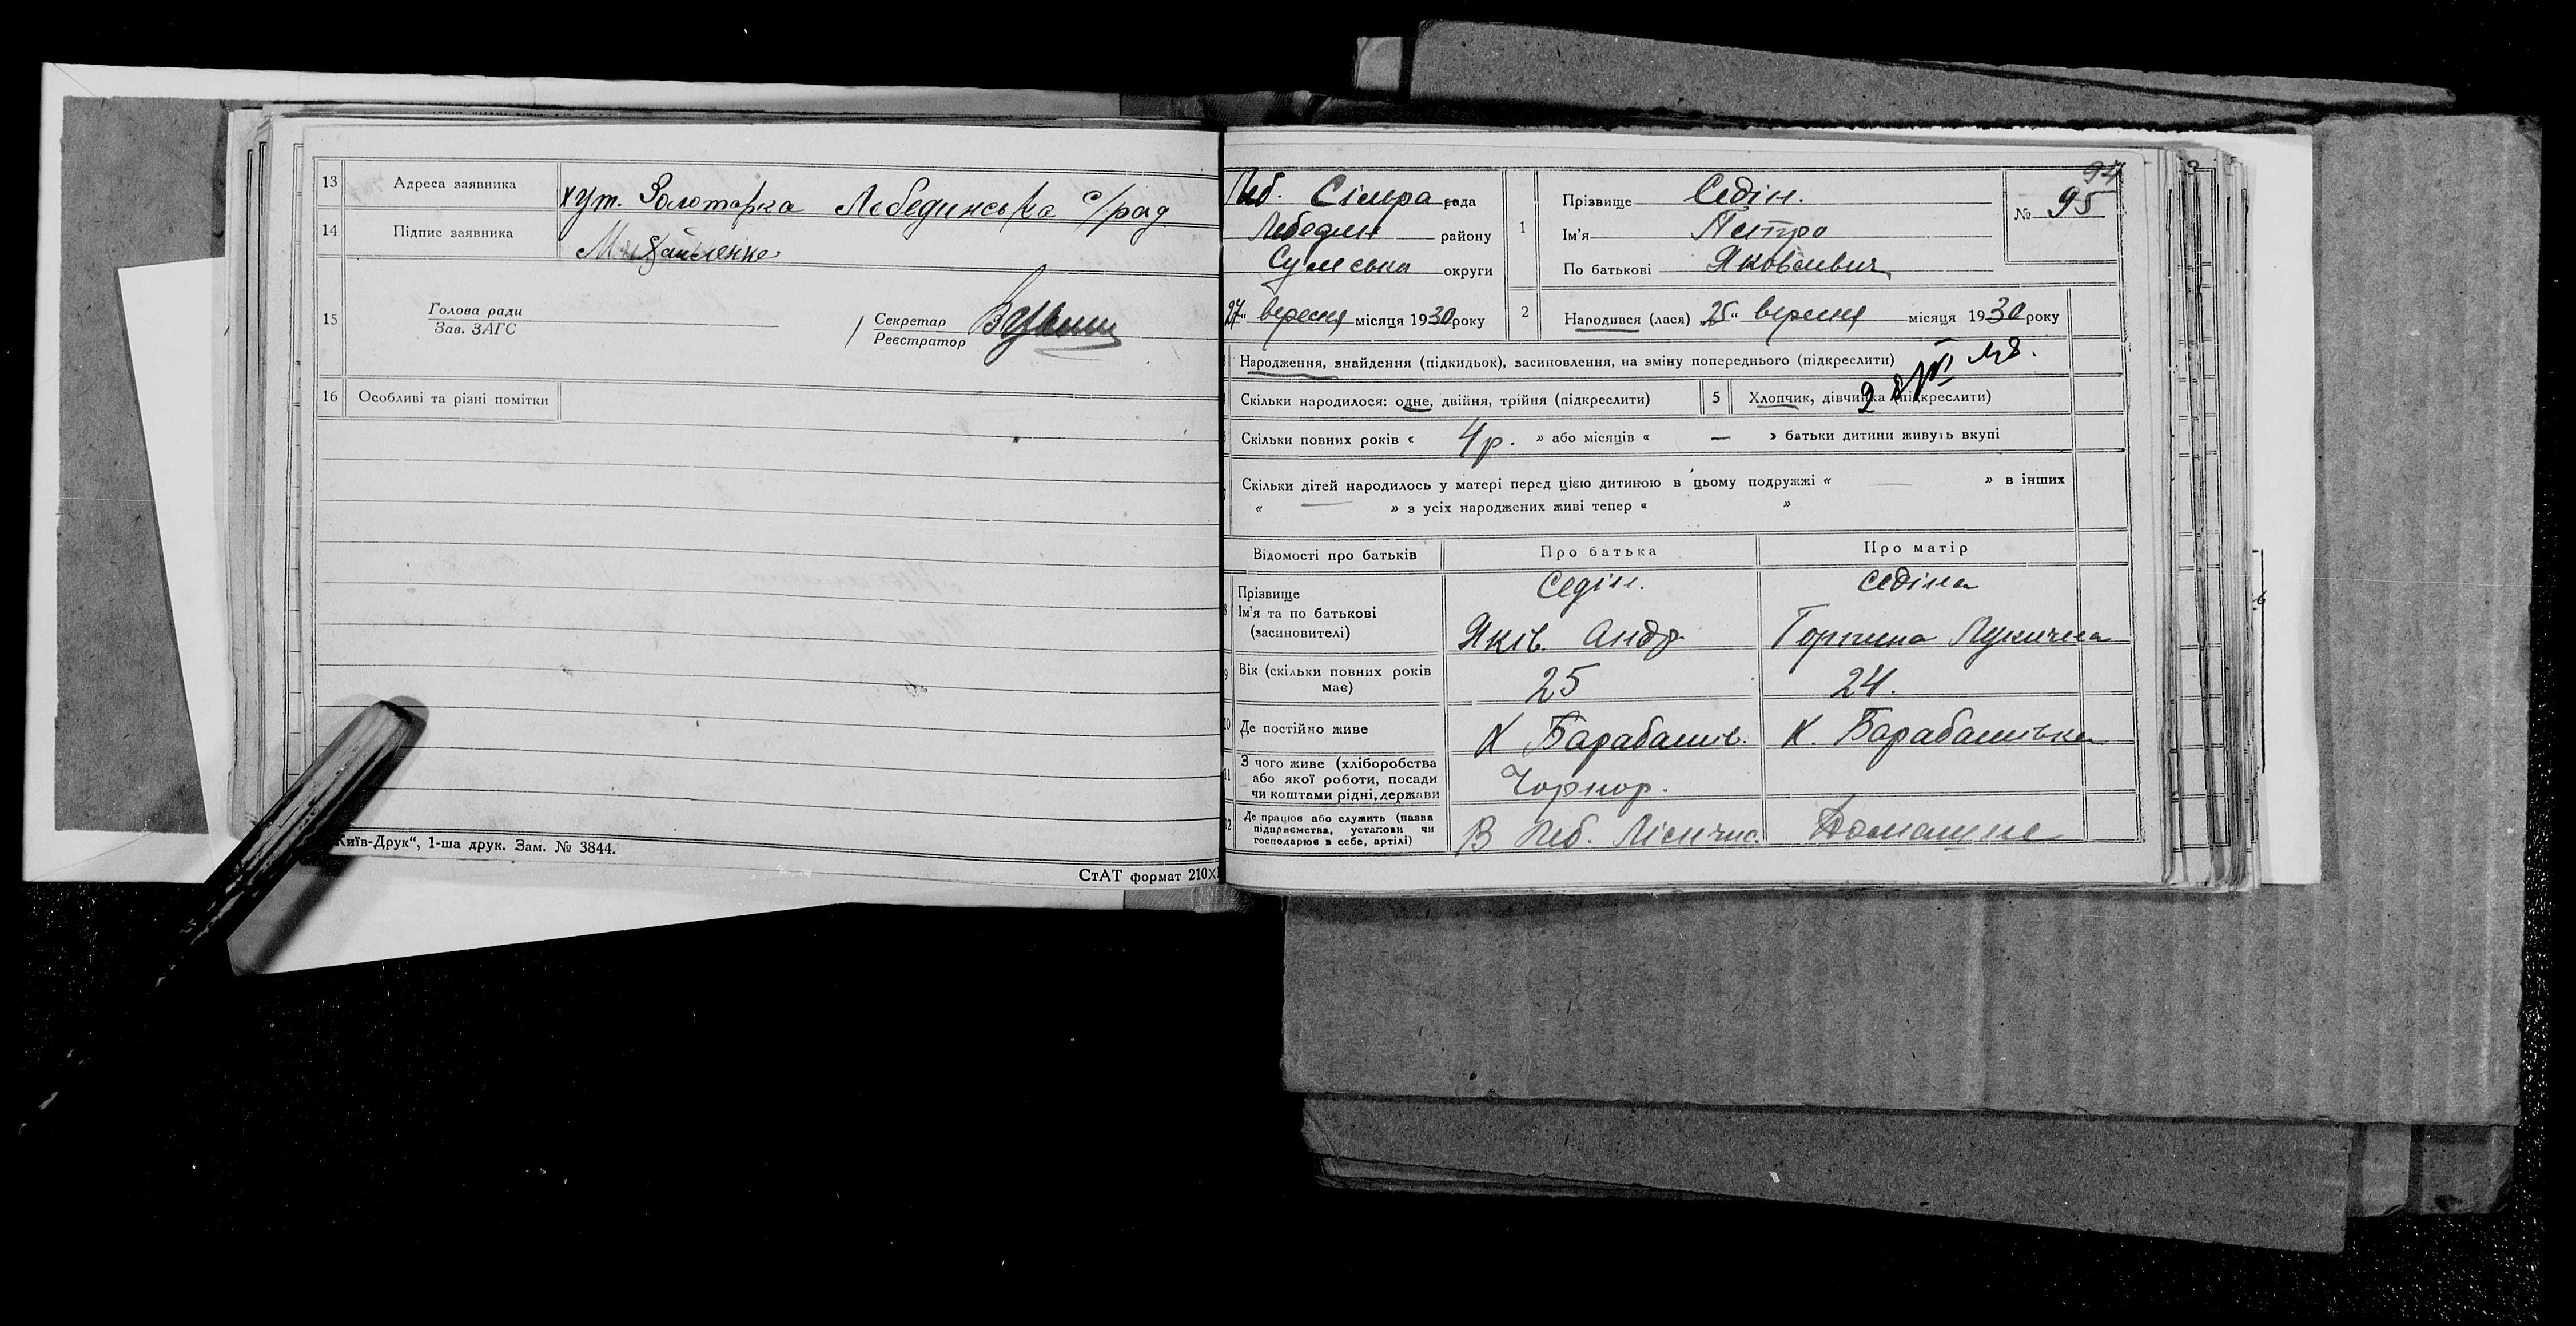 13 Адреса заявника хут. Золотарка Лебединська с/рад
14 Підпис заявника Михайленко
15 Голова ради
Зав. ЗАГС
Секретар
Реєстратор
16 Особливі та різні помітки
Київ-Друк“, 1-ша друк. Зам. № 3844.
СтАТ формат 210×
94
Леб. Сільра рада
Лебедин району
Сумська округи
27“ вересня місяця 1930 року
1 Прізвище Седін.
Ім'я Петро
По батькові Яковлевич
№ 95
2 Народився (лася) 25“ вересня місяця 1930 року
Народження, знайдення (підкидьок), засиновлення, на зміну попереднього (підкреслити)
Скільки народилося: одне, двійня, трійня (підкреслити)
5 Хлопчик, дівчинка (підкреслити)
Скільки повних років « 4 р. » або місяців « — » батьки дитини живуть вкупі
Скільки дітей народилось у матері перед цією дитиною в цьому подружжі « — » в інших
« — » з усіх народжених живі тепер « »
Відомості про батьків Про батька Про матір
8 Прізвище Седін. Седіна
Ім'я та по батькові
(засновителі) Яків Андр Горпина Лукична
9 Вік (скільки повних років має) 25 24.
10 Де постійно живе Х Барабашів. Х. Барабашівка
11 З чого живе (хліборобства
або якої роботи, посади
чи коштами рідні, держави Чорнор.
12 Де працює або служить (назва
підприємства, установи чи
господарює в себе, артілі) В Леб. Лісничс. Домашне